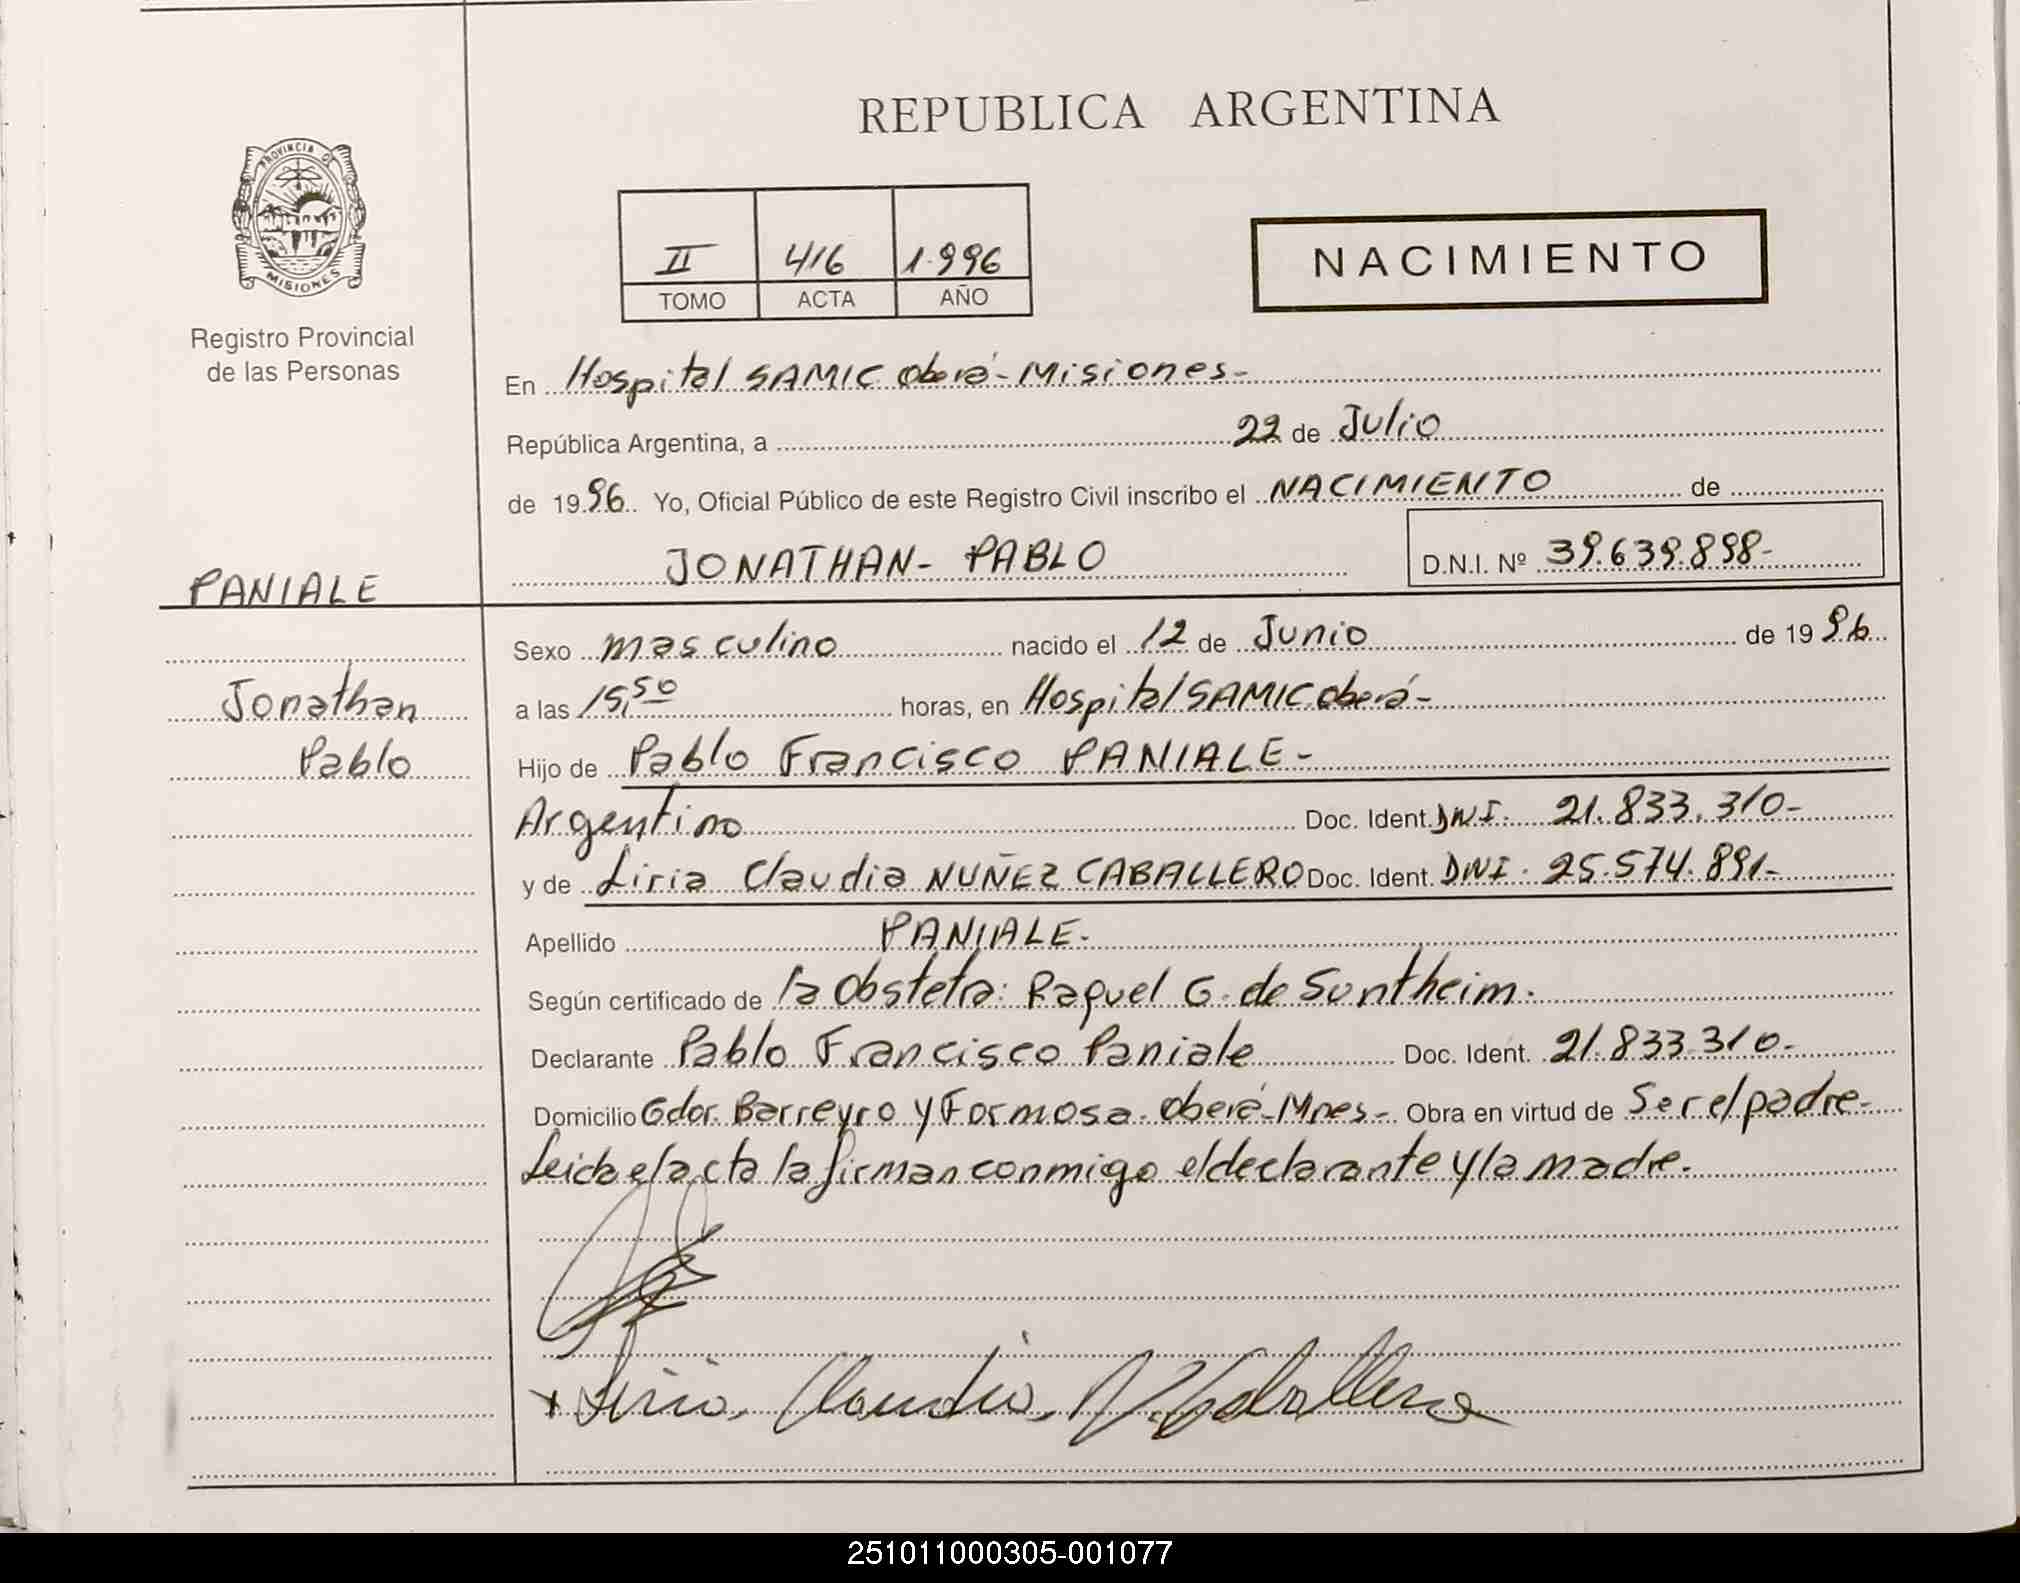 REPUBLICA ARGENTINA
PROVINCIA DE
MISIONES
Registro Provincial
de las Personas
II 416 1.996
TOMO ACTA AÑO
NACIMIENTO
En Hospital SAMIC Oberá - Misiones -
República Argentina, a 22 de Julio
de 1996. Yo, Oficial Público de este Registro Civil inscribo el NACIMIENTO de
JONATHAN - PABLO D.N.I. Nº 39.639.898-
PANIALE
Jonathan
Pablo
Sexo masculino nacido el 12 de Junio de 1996
a las 15,50 horas, en Hospital SAMIC Oberá -
Hijo de Pablo Francisco PANIALE -
Argentino Doc. Ident. DNI. 21.833.310-
y de Liria Claudia NUÑEZ CABALLERO Doc. Ident. DNI. 25.574.891-
Apellido PANIALE.
Según certificado de la Obstetra: Raquel G. de Suntheim.
Declarante Pablo Francisco Paniale Doc. Ident. 21.833.310-
Domicilio Gdor. Barreyro y Formosa - Oberá - Mnes - Obra en virtud de Ser el padre -
Leida el acta la firman conmigo el declarante y la madre.
x Liria, Claudia, N. Caballero
251011000305-001077